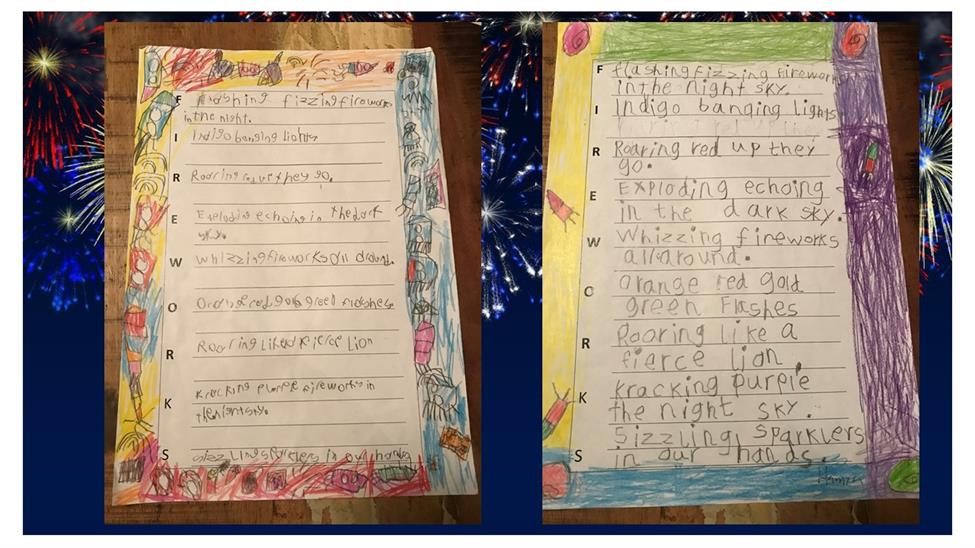 F flashing fizzing fireworks
in the night.
I Indigo banging lights
R Roaring red up they go.
E Exploding echoing in the dark
sky.
W whizzing fireworks all around.
O red gold green flashes
R Roaring like a fierce lion
K kracking purple fireworks in
the night sky.
S sizzling sparklers in our hands
F flashing fizzing firewor
in the night sky.
I Indigo banging lights
R Roaring red up they
go.
E Exploding echoing
in the dark sky.
W Whizzing fireworks
all around.
O orange red gold
green flashes
R Roaring like a
fierce lion
K kracking purple
the night sky.
S Sizzling sparklers
in our hands.